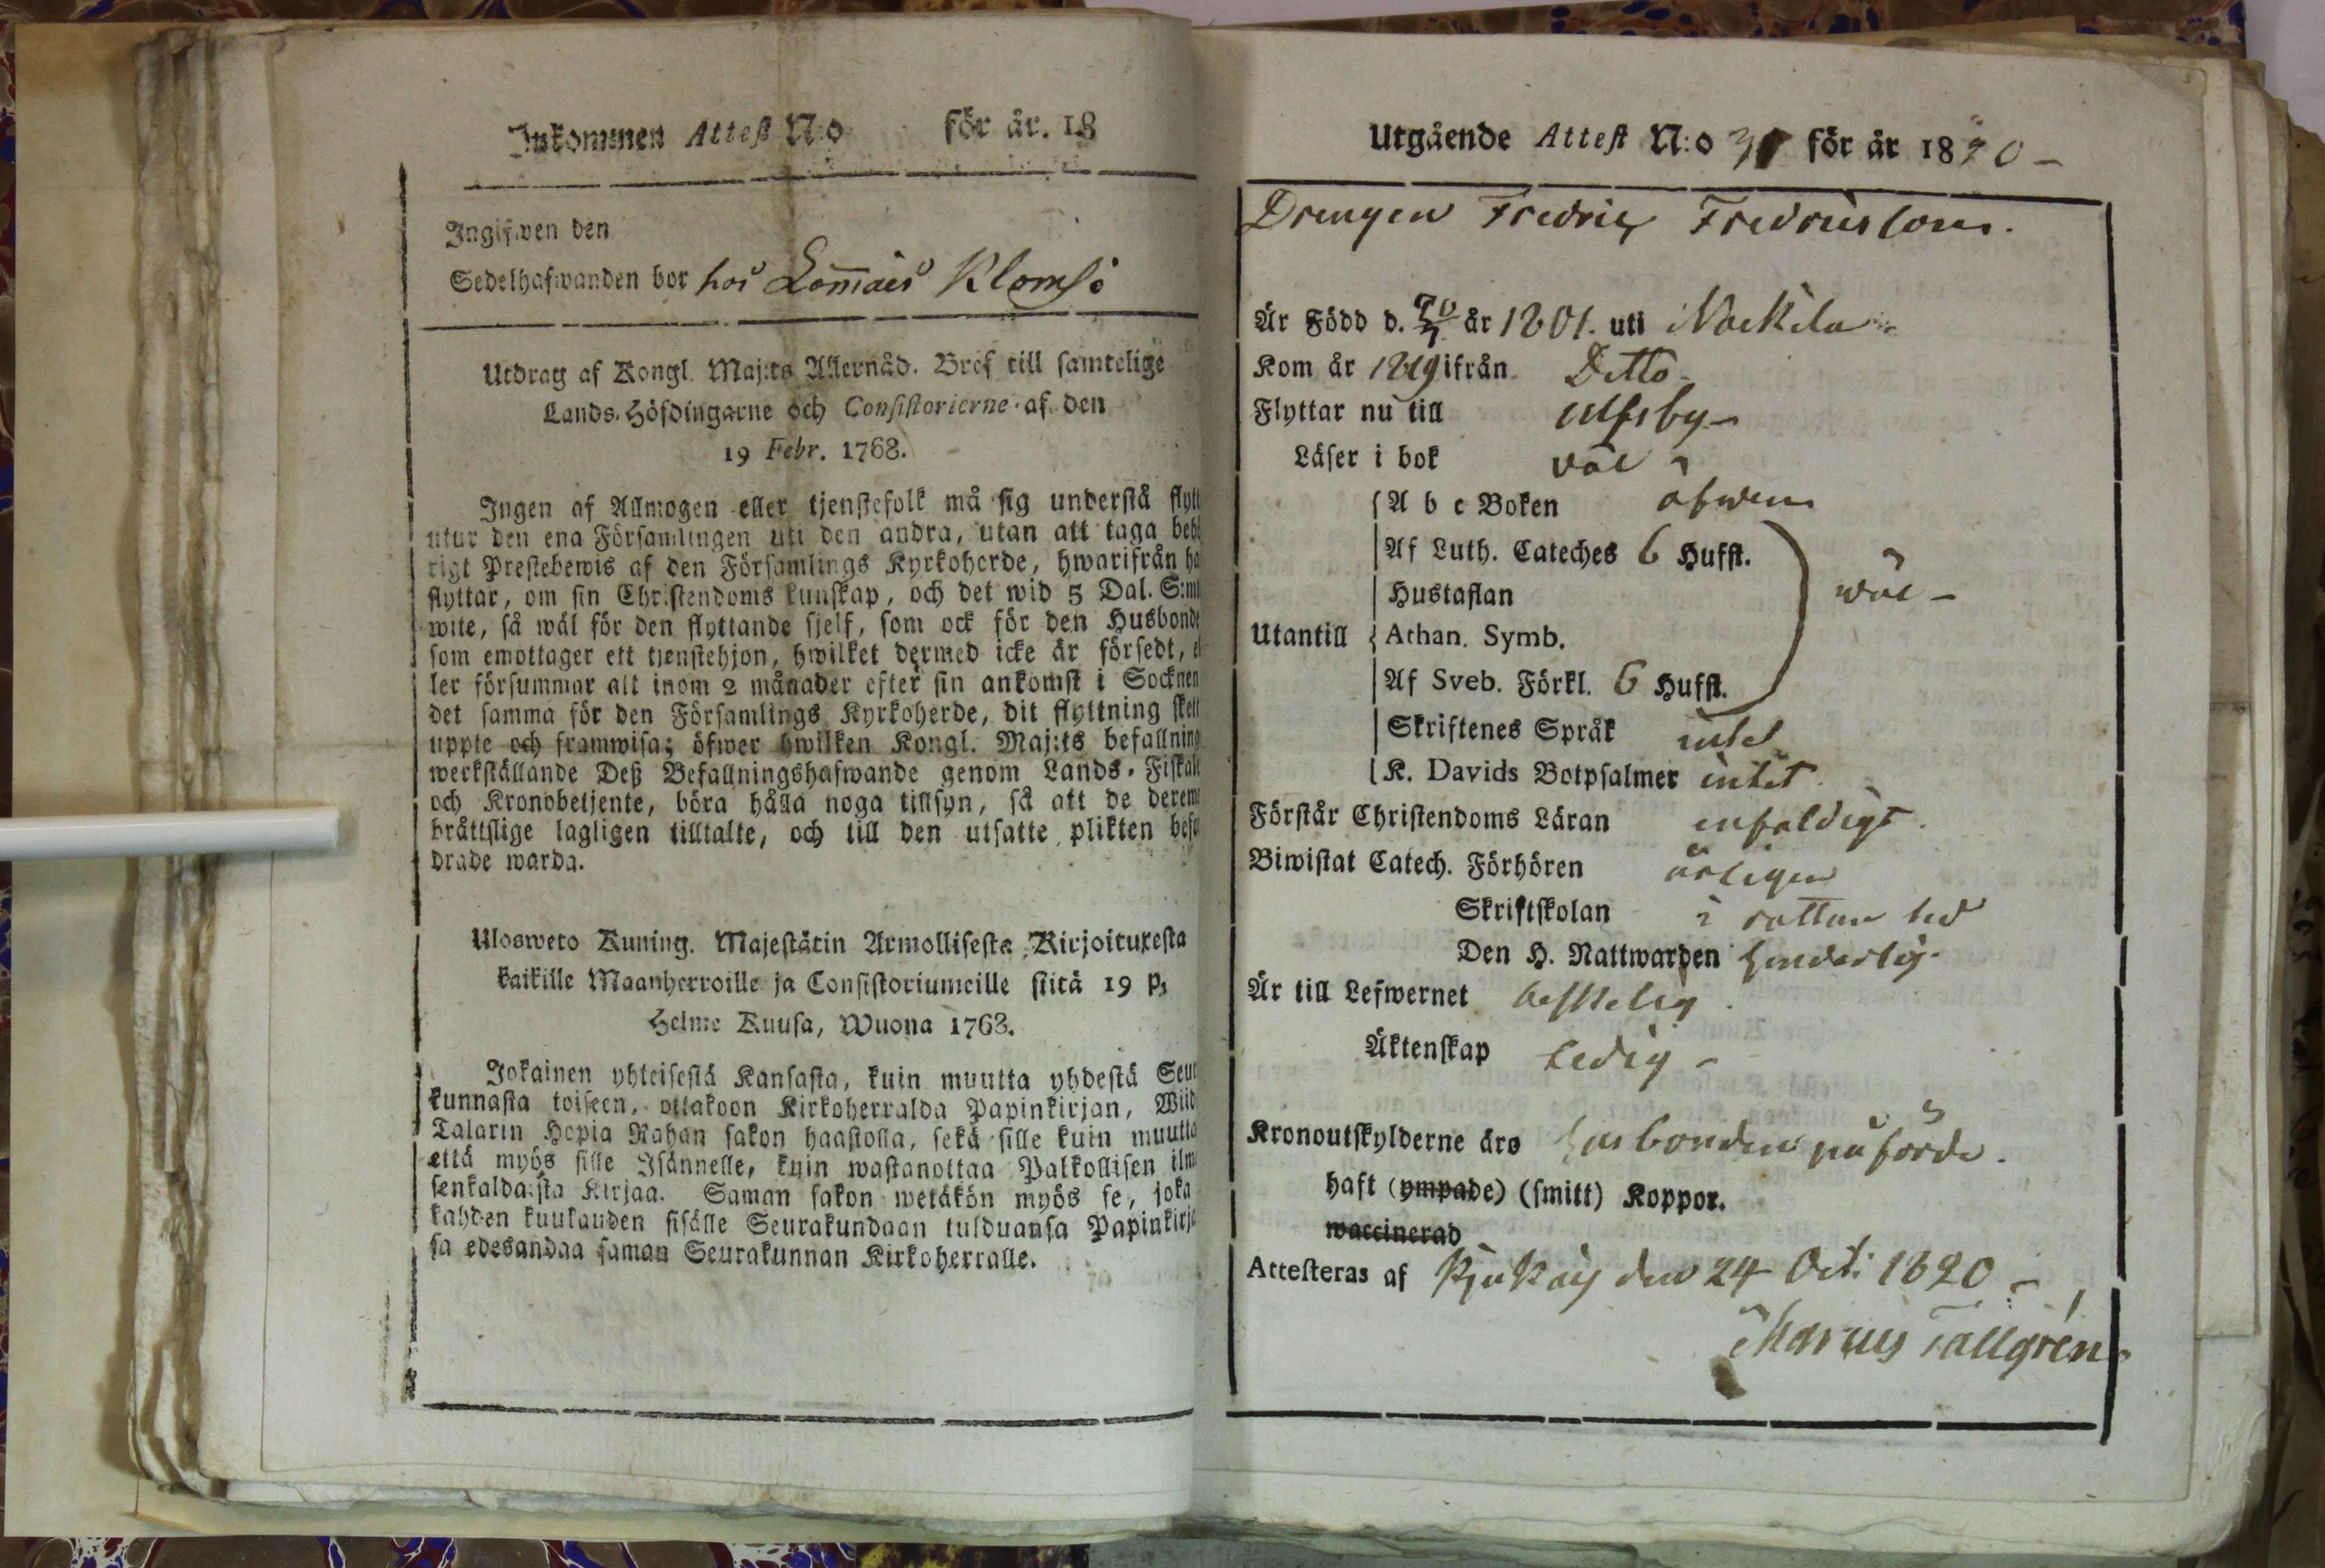 Inkommen Attest N:o för år. 18
Ingifwen den
Sedelhafwanden bor hos Klomsi
Utdrag af Kongl. Maj:ts Allernåd. Bref till samtelige
Lands-Höfdingarne och Consistorierne af den
19 Febr. 1768.
Ingen af Allmogen eller tjenstefolk må sig understå flytt
utur den ena Församlingen uti den andra, utan att taga behö
rigt Prestebewis af den Församlings Kyrkoherde, hwarifrån ha
flyttar, om sin Christendoms kunskap, och det wid 5 Dal. S:mt
wite, så wäl för den flyttande sjelf, som ock för den Husbonde
som emottager ett tjenstehjon, hwilket dermed icke är försedt, el
ler försummar att inom 2 månader efter sin ankomst i Socknen
det samma för den Församlings Kyrkoherde, dit flyttning skett
uppte och framwisa; öfwer hwilken Kongl. Maj:ts befallning
werkställande Deß Befallningshafwande genom Lands-Fiskale
och Kronobetjente, böra hålla noga tillsyn, så att de derem
bråttslige lagligen tilltalte, och till den utsatte plikten befo
drade warda.
Ulosweto Kuning. Majestätin Armollisesta Kirjoituxesta
kaikille Maanherroille ja Consistoriumeille siitä 19 p,
Helme Kuusa, Wuona 1768.
Jokainen yhteisestä Kansasta, kuin muutta yhdestä Seur
kunnasta toiseen, ottakoon Kirkoherralda Papinkirjan, Wiid
Talarin Hopia Rahan sakon haastolla, sekä sille kuin muutta
että myös sille Isännelle, kuin wastanottaa Palkollisen ilm
senkaldaista Kirjaa. Saman sakon wetäkön myös se, joka
kahden kuukauden sisälle Seurakundaan tulduansa Papinkirja
sa edesandaa saman Seurakunnan Kirkoherralle.
Utgående Attest N:o för år 1820 -
Drengen Fredric Fredricsson.
Är Född d. år 1801. uti Nackila
Kom år 1819 ifrån Ditto
Flyttar nu till Ulfsby
Läser i bok väl
A b c Boken äfwen
Af Luth. Cateches 6 Hufst.
Hustaflan wäl -
Utantill Athan. Symb.
Af Sveb. Förkl. 6 Hufst.
Skriftenes Språk intet
K. Davids Botpsalmer intet.
Förstår Christendoms Läran enfaldigt.
Biwistat Catech. Förhören årligen
Skriftskolan i rättan tid
Den H. Nattwarden
Är till Lefwernet beskelig.
Äktenskap Ledig -
Kronoutskylderne äro husbonden påförde.
haft (ympade) (smitt) Koppor.
waccinerad
Attesteras af Kjukais den 24 Oct: 1820 -
Marcus Tallgrén